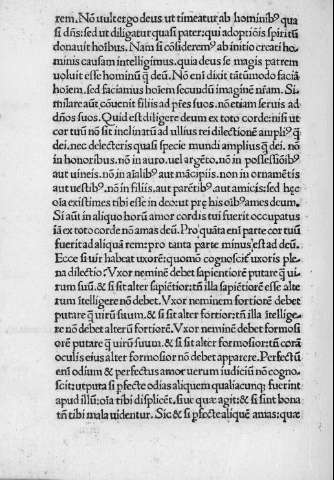 rem. Nō uultergo deus ut timeatur ab hominibꝰ qua
si dn̄s: sed ut diligatur quasi pater: qui adoptiōis spiritū
donauit hoībus. Nam si cōsideremꝰ ab initio creati ho-
minis causam intelligimus, quia deus se magis patrem
uoluit esse hominū q̄ deū. Nō eni dixit tātūmodo faciā
hoiem, sed faciamus hoiem secundū imaginē nr̄am. Si
milare aūt cōuenit filiis ad pr̄es suos, nō etiam seruis ad
dn̄os suos. Quid est diligere deum ex toto corde: nisi ut
cor tuū nō sit inclinatū ad ullius rei dilectionē ampliꝰ q̄
dei, nec delecteris quasi specie mundi amplius q̄ dei. nō
in honoribus, nō in auro, uel argēto, nō in possessiōibꝰ
aut uineis, nō in aīalibꝰ aut mācipiis, non in ornamētis
aut uestibꝰ, nō in filiis, aut parētibꝰ, aut amicis: sed hęc
oīa existimes tibi esse in deo: ut prę his oībꝰ ames deum.
Si aūt in aliquo horū amor cordis tui fuerit occupatus
iā ex toto corde nō amas deū. Pro quāta eni parte cor tuū
fuerit ad aliquā rem: pro tanta parte minus est ad deū.
Ecce si uir habeat uxorē: quomō cognoscit̄ uxoris ple-
na dilectio? Vxor neminē debet sapientiorē putare q̄ ui-
rum suū, & si sit alter sapiētior: tn̄ illa sapiētiorē esse alte
rum ītelligere nō debet. Vxor neminem fortiorē debet
putare q̄ uirū suum, & si sit alter fortior: tn̄ illa ītellige-
re nō debet alterū fortiorē. Vxor neminē debet formosi
orē putare q̄ uirū suum, & si sit alter formosior: tn̄ corā
oculis eius alter formosior nō debet apparere. Perfectū
eni odium & perfectus amor uerum iudiciū nō cogno-
scit: utputa si ꝑfecte odias aliquem qualiacunqꝫ fuerint
apud illū: oīa tibi displicēt, siue quæ agit: & si sint bona
tn̄ tibi mala uidentur. Sic & si ꝑfecte aliquē amas: quæ